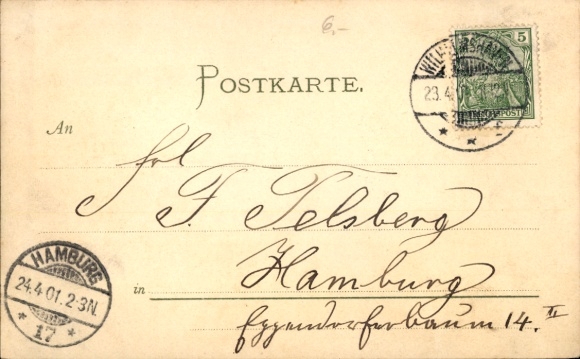 6.-
5
WILHELMSHAVEN
23.4.01
REICHSPOST
POSTKARTE.
An
Frl.
F. Telsberg
HAMBURG
24.4.01.2-3N.
* 17 *
in Hamburg
Eppendorferbaum 14. II